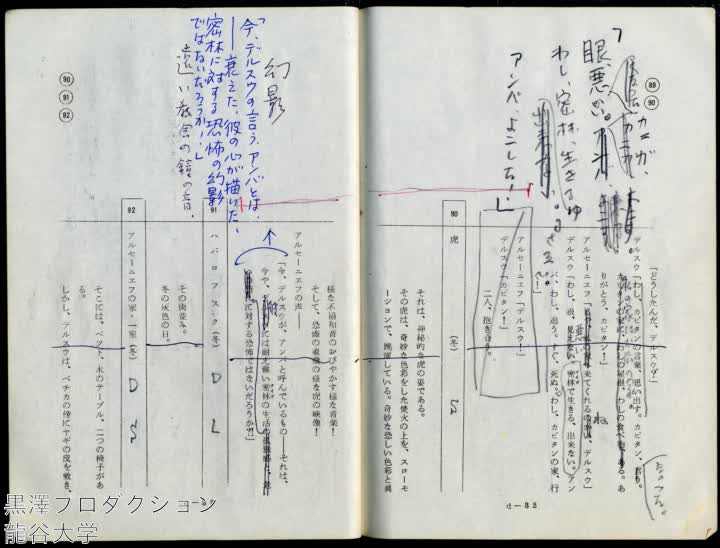 89
90
「
カニガ、
眼、悪い。
わし、密林、生きるゆ
るさね
アンバ、よこした！」
「どうしたんだ、デルスウ？」
デルスウ「わし、カピタンの言葉、思い出す。カピタン、言う。
カピタンの家、わしの屋根、わしの食べ物、ある。あ
りがとう、カピタン！」
アルセーニエフ「
来てくれるのかい、デルスウ」
デルスウ「わし、眼、見えない。密林で生きる、出来ない。アン
バ、わし、追う。すぐ、死ぬ。わし、カピタンの家、行
く！」
アルセーニエフ「デルスウ！」
デルスウ「カピタン！」
二人、抱き合う。
90 虎 （冬）
それは、神秘的な虎の姿である。
その虎は、奇妙な色彩をした焚火の上を、スローモ
ーションで、跳躍している。奇妙な恐しい色彩と異
d—32
90
91
92
幻影
「今、デルスウの言う、アンバとは、
──衰えた、彼の心が描いた、
密林に対する恐怖の幻影
ではないだろうか！」
遠い教会の鐘の音。
様な不協和音のおびやかす様な音楽！
そして、恐怖の象徴の様な虎の映像！
アルセーニエフの声——
「今、デルスウが、アンバと呼んでいるもの——それは、
今や、
には耐え難い密林の生活の
に対する恐怖ではないだろうか？」
91 ハバロフスク（冬） D L
その街並み。
冬の灰色の日。
92 アルセーニエフの家・一室（冬） D
そこには、ベット、木のテーブル、二つの椅子があ
る。
しかし、デルスウは、ペチカの傍にヤギの皮を敷き、
黒澤プロダクション
龍谷大学